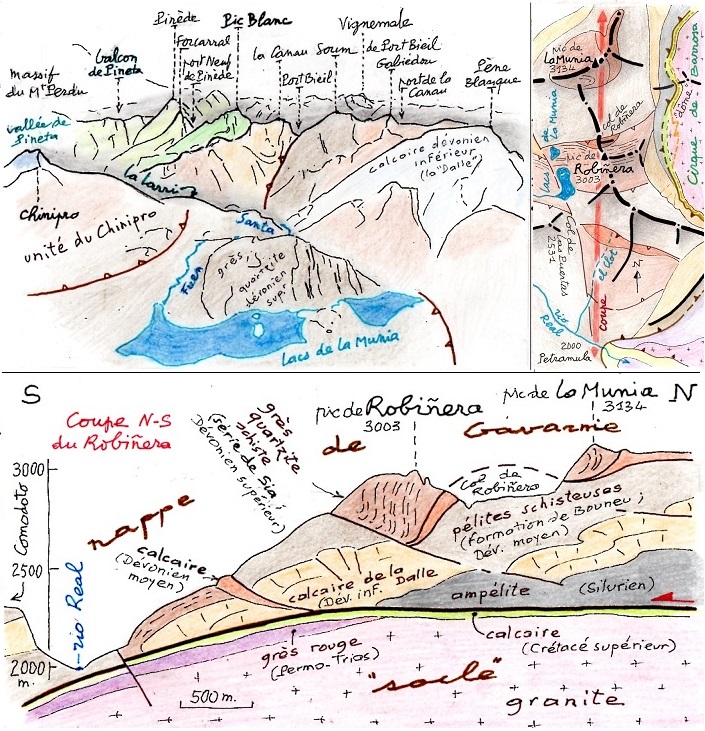 Pinède
Pic Blanc
Vignemale
Forcarral
la Canau
Soum
de Port Bieil
balcon
de Pineta
port Neuf
de Pinède
Port Bieil
Gabiédou
port de la
Canau
Pène
Blanque
massif
du Mt Perdu
vallée de
Pineta
calcaire dévonien
inférieur
(la "Dalle")
la Larri
Chinipro
unité du Chinipro
Santa
Fuen
grès,
quartzite
dévonien
supr
Lacs de la Munia
pic de
La Munia
3134
col de
Robiñera
Lacs de la Munia
pic de
Robiñera
3003
Cirque de Barrosa
Col de
Las Puertas
2531
el Clot
N
coupe
rio
Real
2000
Petramula
S
Coupe N-S
du Robiñera
grès
quartzite
schiste
(série de Sia ;
Dévonien supérieur)
pic de Robiñera
3003
pic de La Munia
3134
N
nappe de Gavarnie
col de
Robiñero
3000
Comodoto
2500
2000
m.
rio Real
calcaire
(Dévonien
moyen)
pélites schisteuses
(formation de Bouneu ;
Dév. moyen)
calcaire de la Dalle
(Dév. inf.)
ampélite
(Silurien)
grès rouge
(Permo-Trias)
calcaire
(Crétacé supérieur)
500 m.
"socle"
granite